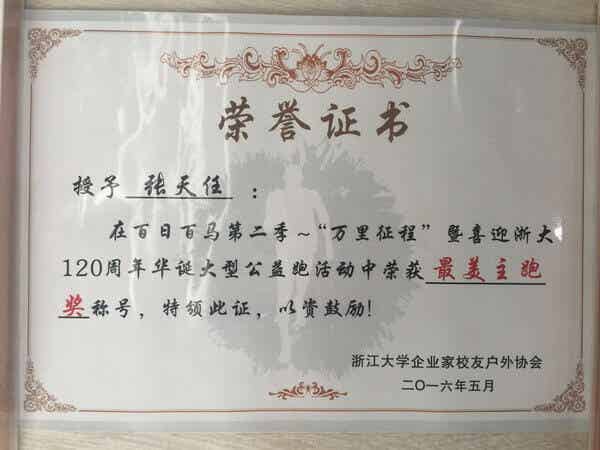 荣誉证书
授予 张天任 :
在百日百马第二季~“万里征程”暨喜迎浙大
120周年华诞大型公益跑活动中荣获 最美主跑
奖称号，特颁此证，以资鼓励!
浙江大学企业家校友户外协会
二〇一六年五月